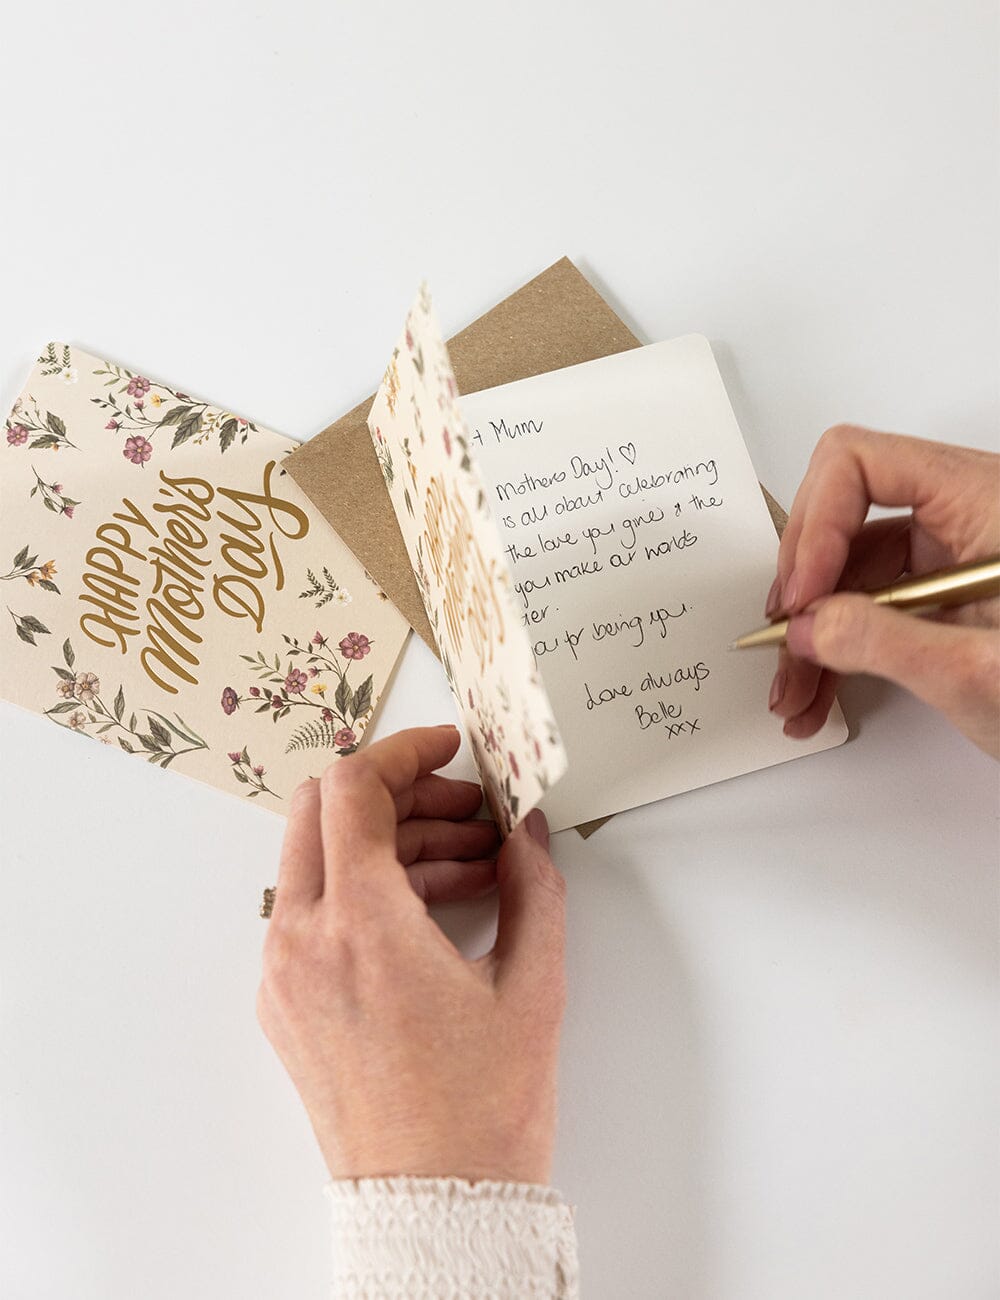 HAPPY
Mother's
Day
HAPPY
Mother's
Day
Mum
Mothers Day! ♡
is all about celebrating
the love you give & the
you make our worlds
for being you.
Love always
Belle
xxx